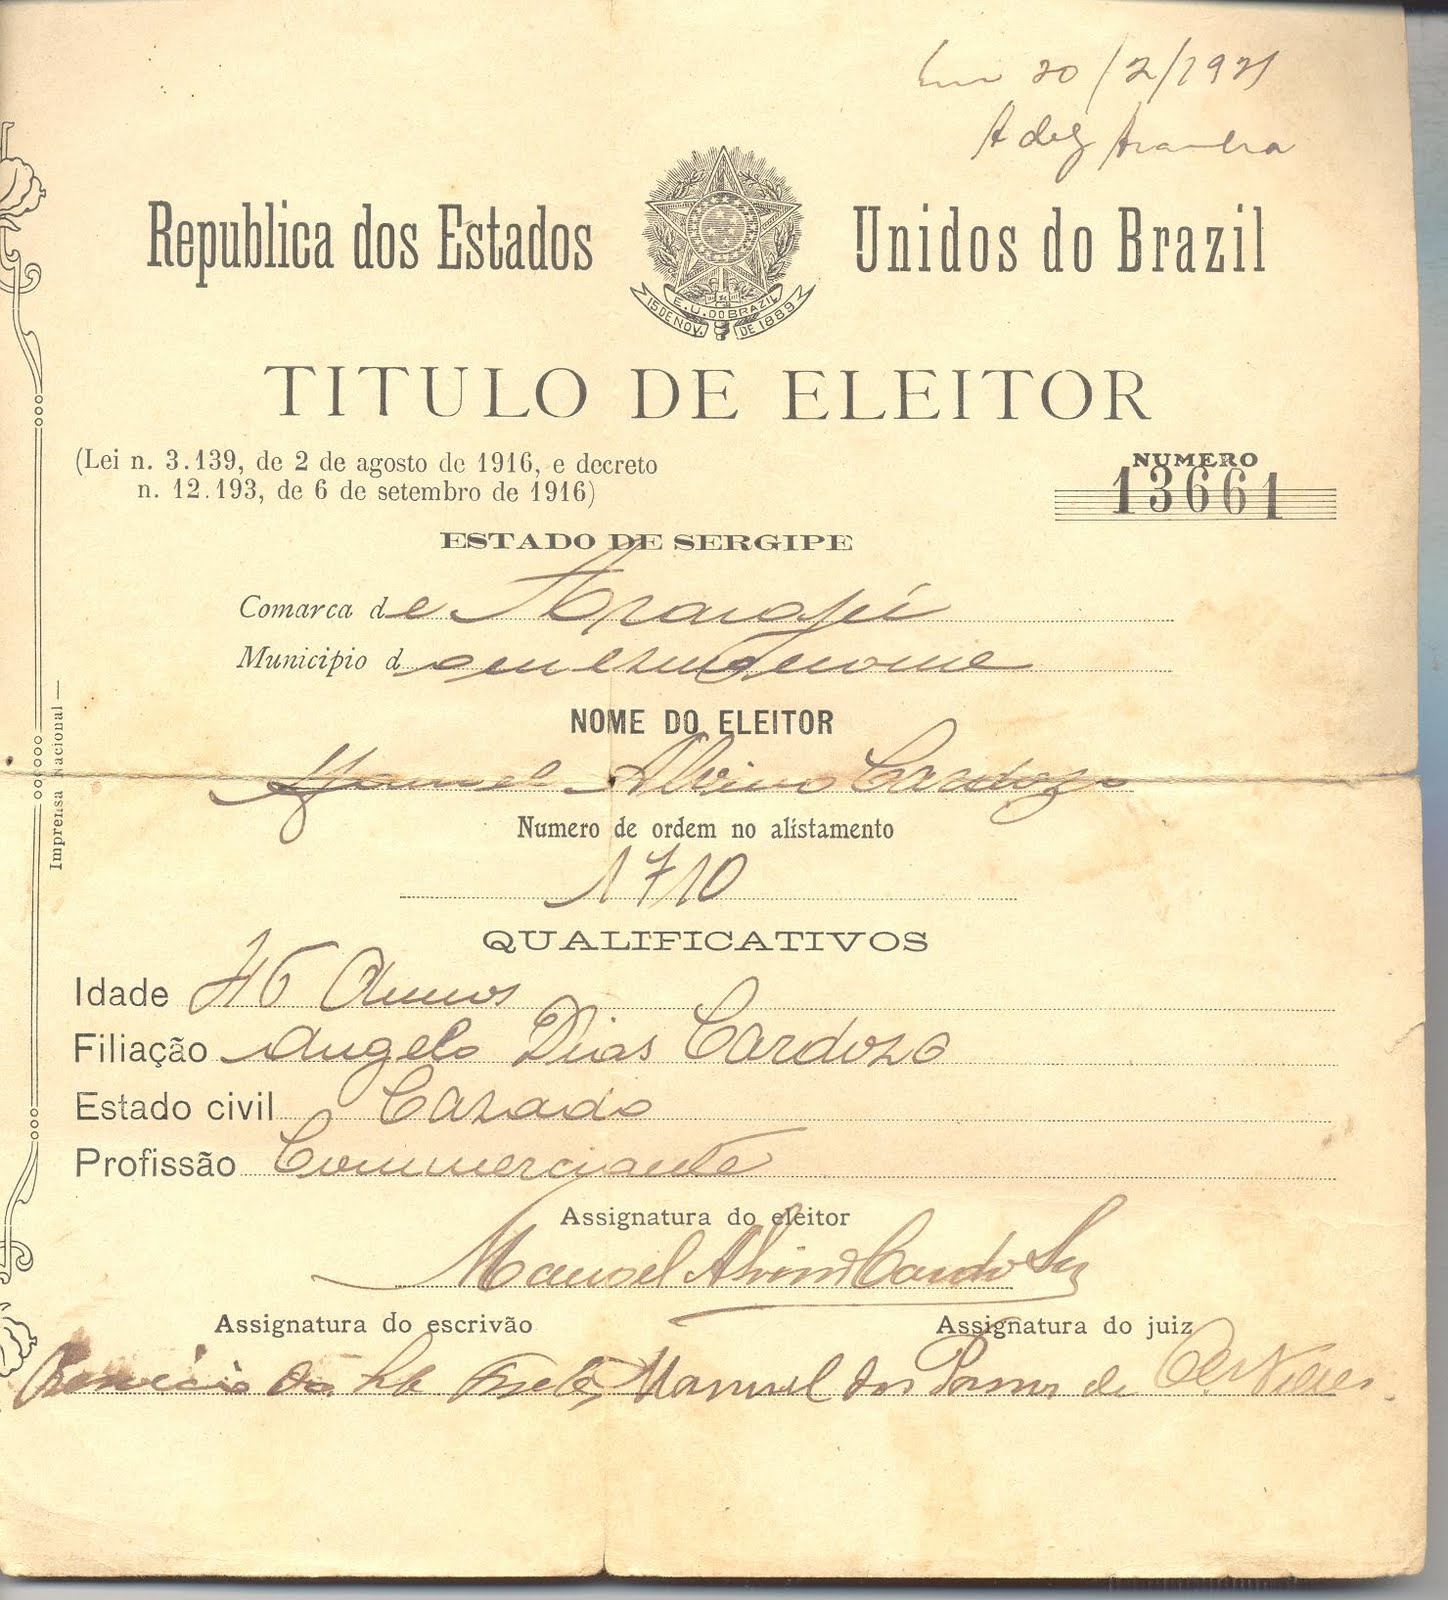 20/2/1921
Republica dos Estados Unidos do Brazil
E. U. DO BRAZIL
15 DE NOV. DE 1889
TITULO DE ELEITOR
(Lei n. 3.139, de 2 de agosto de 1916, e decreto
n. 12.193, de 6 de setembro de 1916)
NUMERO
13661
ESTADO DE SERGIPE
Comarca de Aracajú
Municipio do mesmo nome
NOME DO ELEITOR
Manoel Alvino Cardozo
Numero de ordem no alistamento
1710
QUALIFICATIVOS
Idade 46 Annos
Filiação Angelo Dias Cardozo
Estado civil Cazado
Profissão Commerciante
Assignatura do eleitor
Manoel Alvino Cardoso
Assignatura do escrivão Assignatura do juiz
Manuel dos Passos de
Imprensa Nacional —